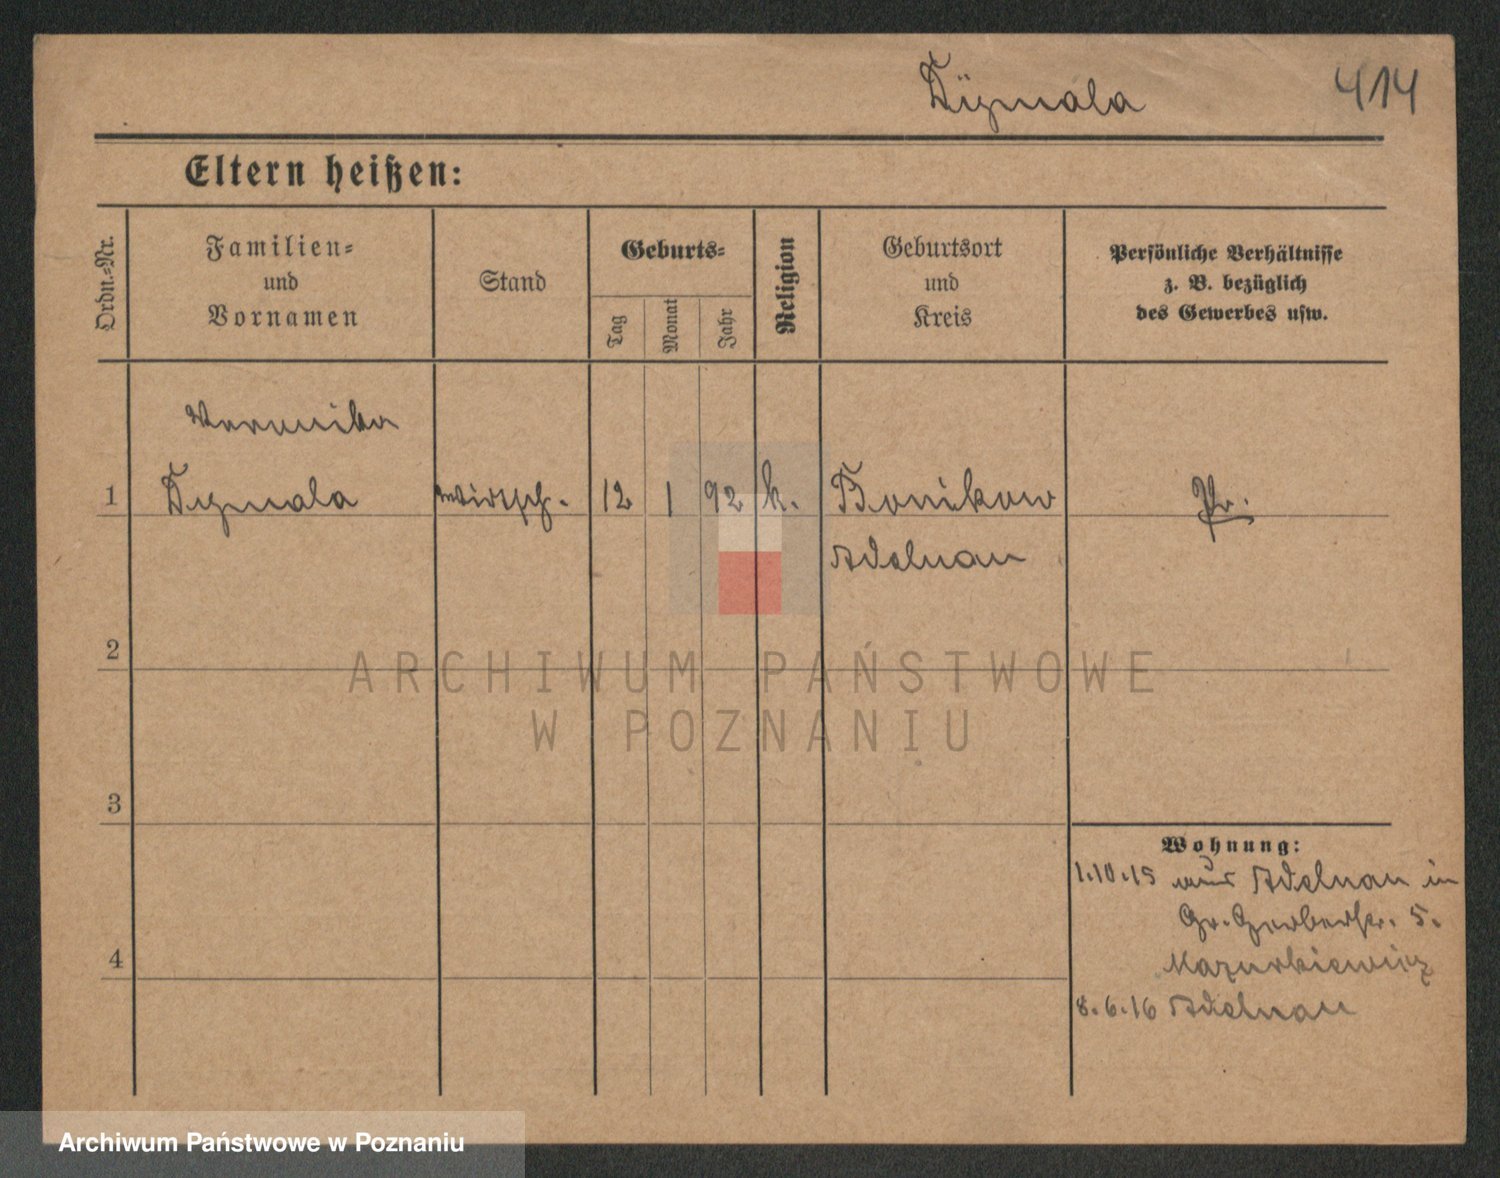 Dÿmala 414
Eltern heißen:
Ordn.-Nr.
Familien-
und
Vornamen
Stand
Geburts-
Tag
Monat
Jahr
Religion
Geburtsort
und
Kreis
Persönliche Verhältnisse
z. B. bezüglich
des Gewerbes usw.
Veronika
1 Dymala Wirtsch. 12 1 92 k. Bonikow Pr.
Adelnau
2
ARCHIWUM PAŃSTWOWE
W POZNANIU
3
Wohnung:
1.10.15 aus Adelnau in
Gr. Gerberstr. 5.
Mazurkiewicz
4
8.6.16 Adelnau
Archiwum Państwowe w Poznaniu